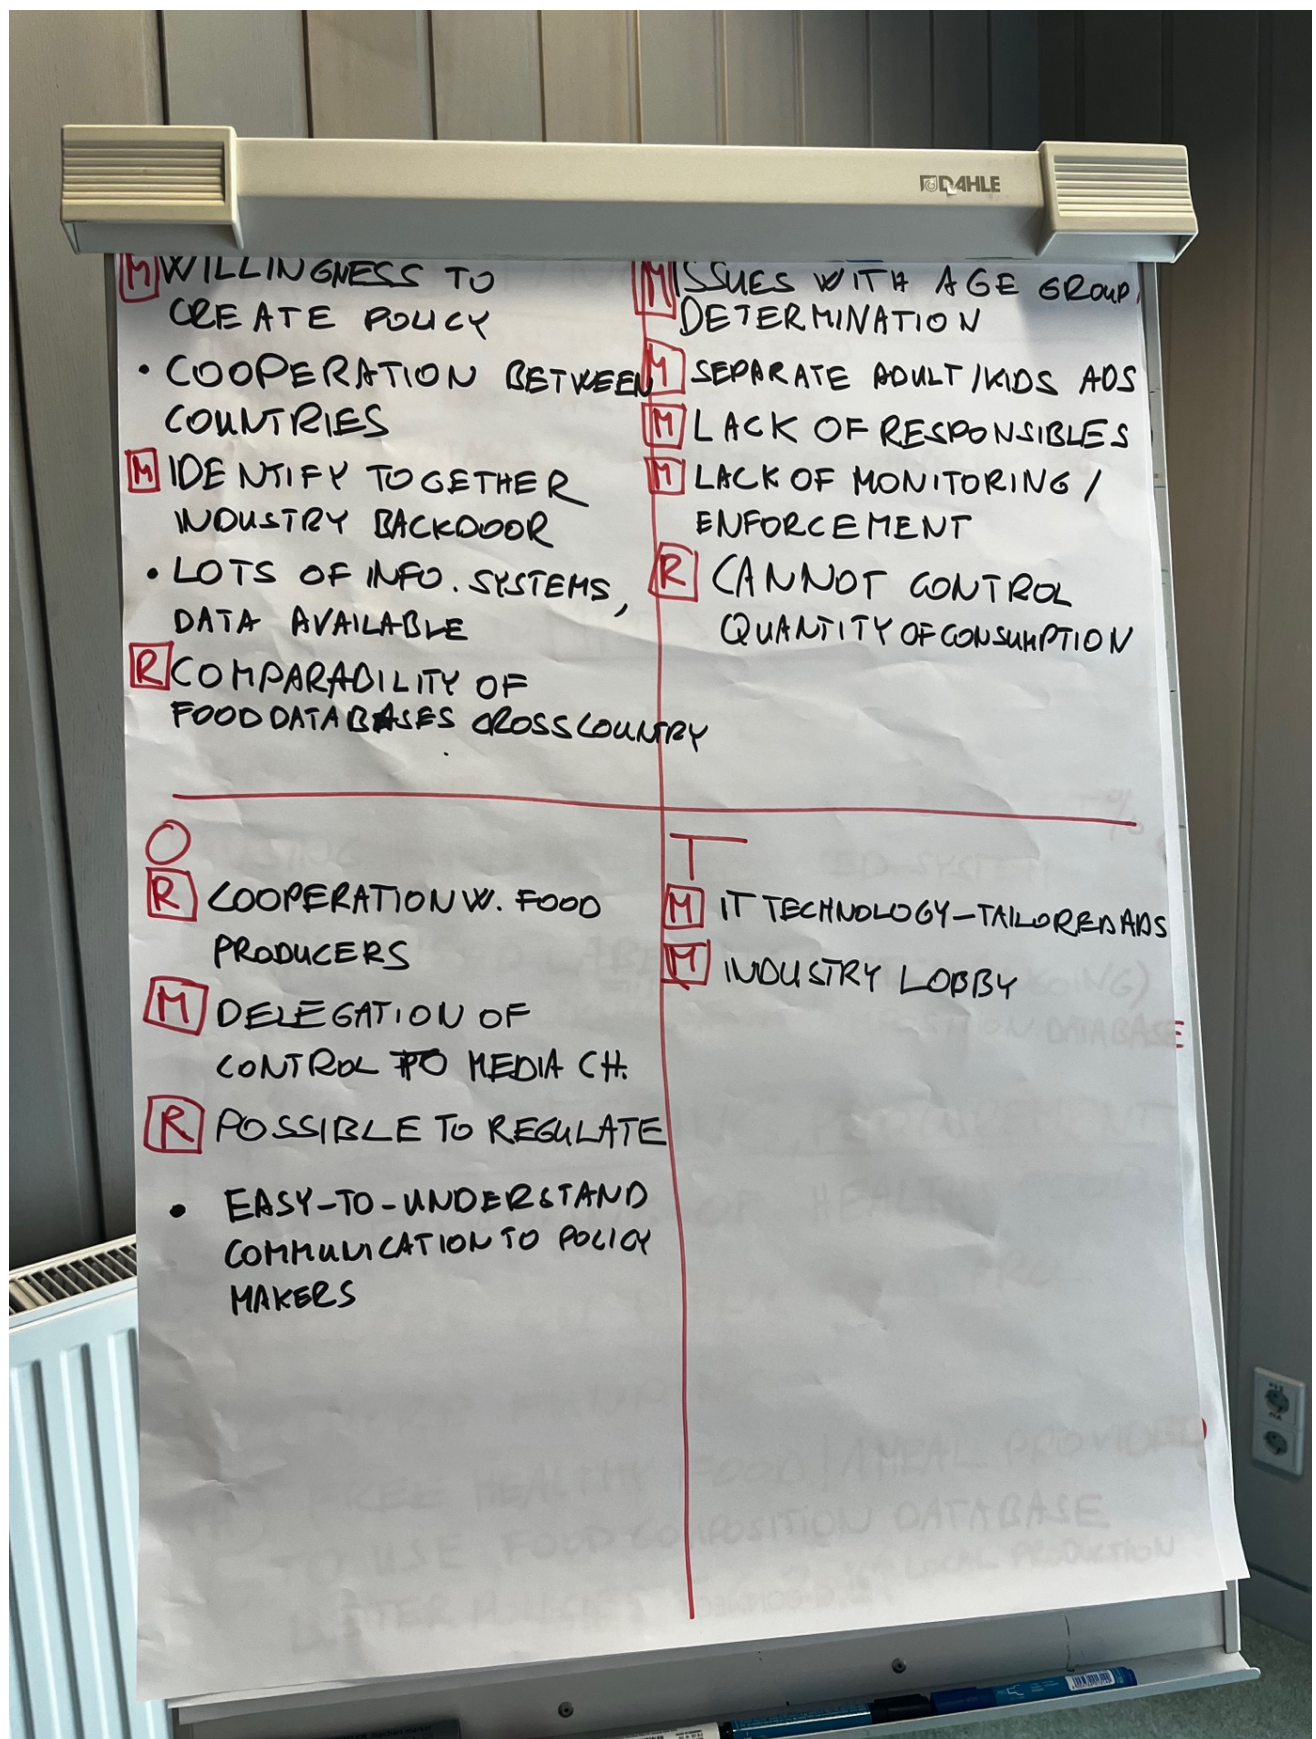 DAHLE
M WILLINGNESS TO
CREATE POLICY
• COOPERATION BETWEEN
COUNTRIES
M IDENTIFY TOGETHER
INDUSTRY BACKDOOR
• LOTS OF INFO. SYSTEMS,
DATA AVAILABLE
R COMPARABILITY OF
FOOD DATABASES CROSS COUNTRY
M ISSUES WITH AGE GROUP
DETERMINATION
M SEPARATE ADULT/KIDS ADS
M LACK OF RESPONSIBLES
M LACK OF MONITORING /
ENFORCEMENT
R CANNOT CONTROL
QUANTITY OF CONSUMPTION
O
R COOPERATION W. FOOD
PRODUCERS
M DELEGATION OF
CONTROL TO MEDIA CH.
R POSSIBLE TO REGULATE
• EASY-TO-UNDERSTAND
COMMUNICATION TO POLICY
MAKERS
T
M IT TECHNOLOGY-TAILORED ADS
M INDUSTRY LOBBY
FREE HEALTHY FOOD / 1 MEAL PROVIDED
TO USE FOOD COMPOSITION DATABASE
LOCAL PRODUCTION